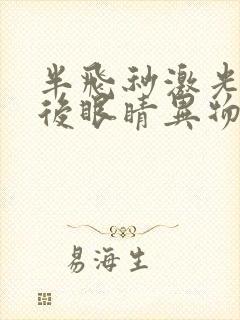 半飛秒激光
後眼睛異物
易海生